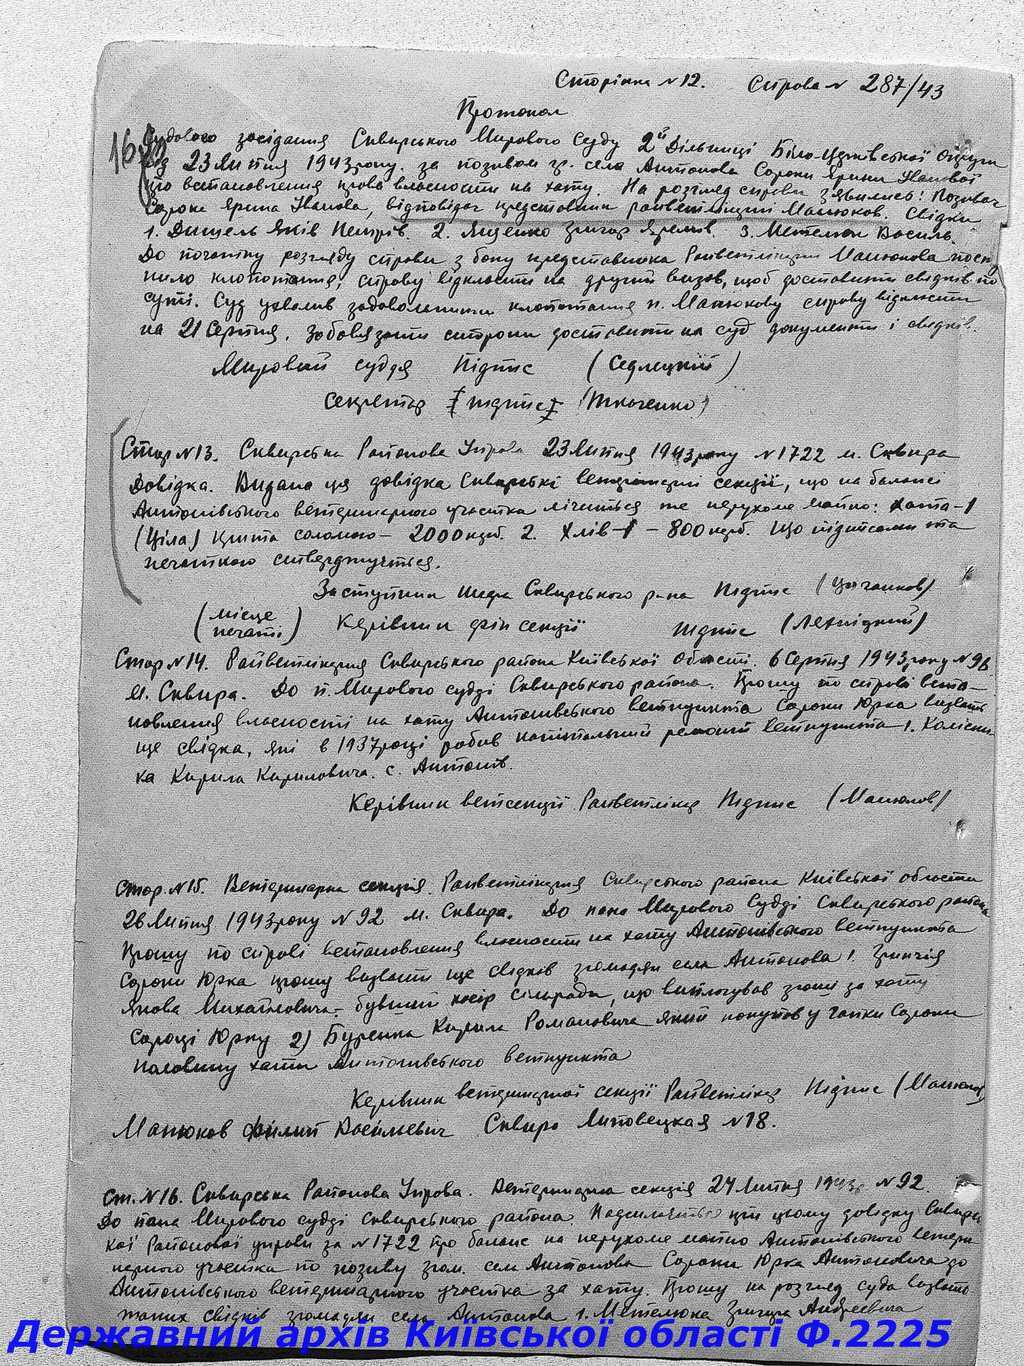 Сторінка №12. Справа № 287/43
Протокол
Судового засідання Сквирського Мирового Суду 2ої Дільниці Біло-Церківської Округи
від 23 Липня 1943 року. за позивом гр. села Антонова Сороки Ярини Іванової
про встановлення права власности на хату. На розгляд справи з'явились: Позивач
Сорока Ярина Іванова, відповідач представник райветлікарні Манюков. Свідки
1. Яків Петрів. 2. Яценко Григор Яремів. 3. Метелюк Василь.
До початку розгляду справи з боку представника Райветлікарні Манюкова посту-
пило клопотання: справу відкласти на другий визов, щоб доставити свідків по
суті. Суд ухвалив задовольнити клопотання п. Манюкову справу відкласти
на 21 Серпня. Зобов'язати сторони доставити на суд документи і свідків.
Мировий суддя Підпис (Седлецкий)
Секретар підпис (Ткаченко)
Стор №13. Сквирська Районова Управа 23 Липня 1943 року №1722 м. Сквира
Довідка. Видана ця довідка Сквирські ветлікарні секції, що на балансі
Антонівського ветеринарного участка лічиться те нерухоме майно: Хата-1
(Ціла) крита соломою - 2000 карб. 2. Хлів-1 - 800 карб. Що підписами та
печаткою стверджується.
Заступник Шефа Сквирського р-на Підпис (Циганков)
(місце печаті) Керівник фін секції підпис
Стор №14. Райветлікарня Сквирського района Київської Області. 6 Серпня 1943 року №96
м. Сквира. До п. Мирового судді Сквирського района. Прошу по справі вста-
новлення власності на хату Антонівського ветпункта Сороки Юрка визвать
ще свідка, які в 1937 році робив капітальний ремонт ветпункта 1. Колісни-
ка Кирила Кириловича. с. Антонів.
Керівник ветсекції Райветлікар Підпис (Манюков)
Стор. №15. Ветеринарна секція. Райветлікарня Сквирського района Київської області
26 Липня 1943 року №92 м. Сквира. До пана Мирового Судді Сквирського района
Прошу по справі встановлення власности на хату Антонівського ветпункта
Сороки Юрка прошу визвати ще свідків громадян села Антонова 1.
Якова Михайловича - бувший касір сільради, що виплочував гроші за хату
Сороці Юрку 2) Буренка Кирила Романовича який покупав у Сороки
половину хати Антонівського ветпункта
Керівник ветеринарної секції Райветлікар Підпис (Манюков)
Манюков Филип Васильевич Сквира Липовецкая №18.
Ст. №16. Сквирська Районова Управа. Ветеринарна секція 24 Липня 1943р №92
До пана Мирового судді Сквирського района. Надсилається при цьому довідку Сквирсь-
кої Районової управи за №1722 про баланс на нерухоме майно Антонівського ветери-
нарного участка по позиву гром. села Антонова Сороки Юрка Антоновича до
Антонівського ветеринарного участка за хату. Прошу на розгляд суда визвати
таких свідків громадян села Антонова 1. Метелюка Григора Андреевича
Державний архів Київської області Ф.2225